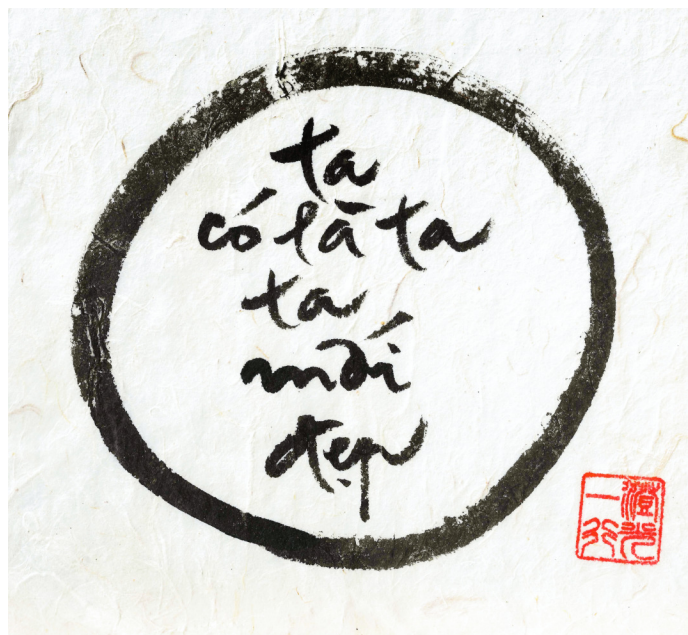 ta
có là ta
ta
mới
đẹp
澄光
一行